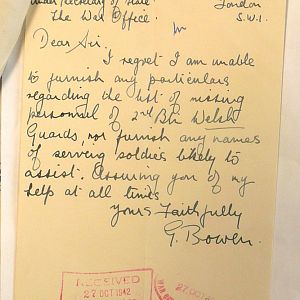 Under Secretary of State
London
The War Office.
S.W.1.
Dear Sir.
I regret I am unable
to furnish any particulars
regarding the list of missing
personnel of 2nd Bn Welsh
Guards, nor furnish any names
of serving soldies likely to
assist. Assuring you of my
help at all times
Yours Faithfully
G. Bowen.
RECEIVED
27 OCT 1942
WAR
27 OCT 1942